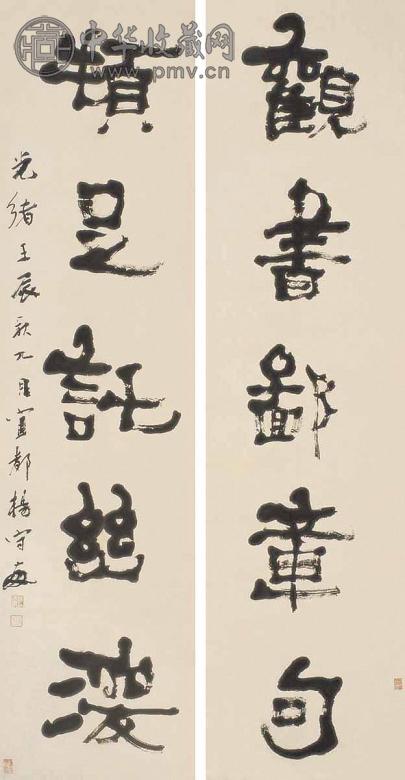 中华收藏网
www.pmv.cn
觀書鄙章句
足託
光緒壬辰秋九月宜都楊守敬